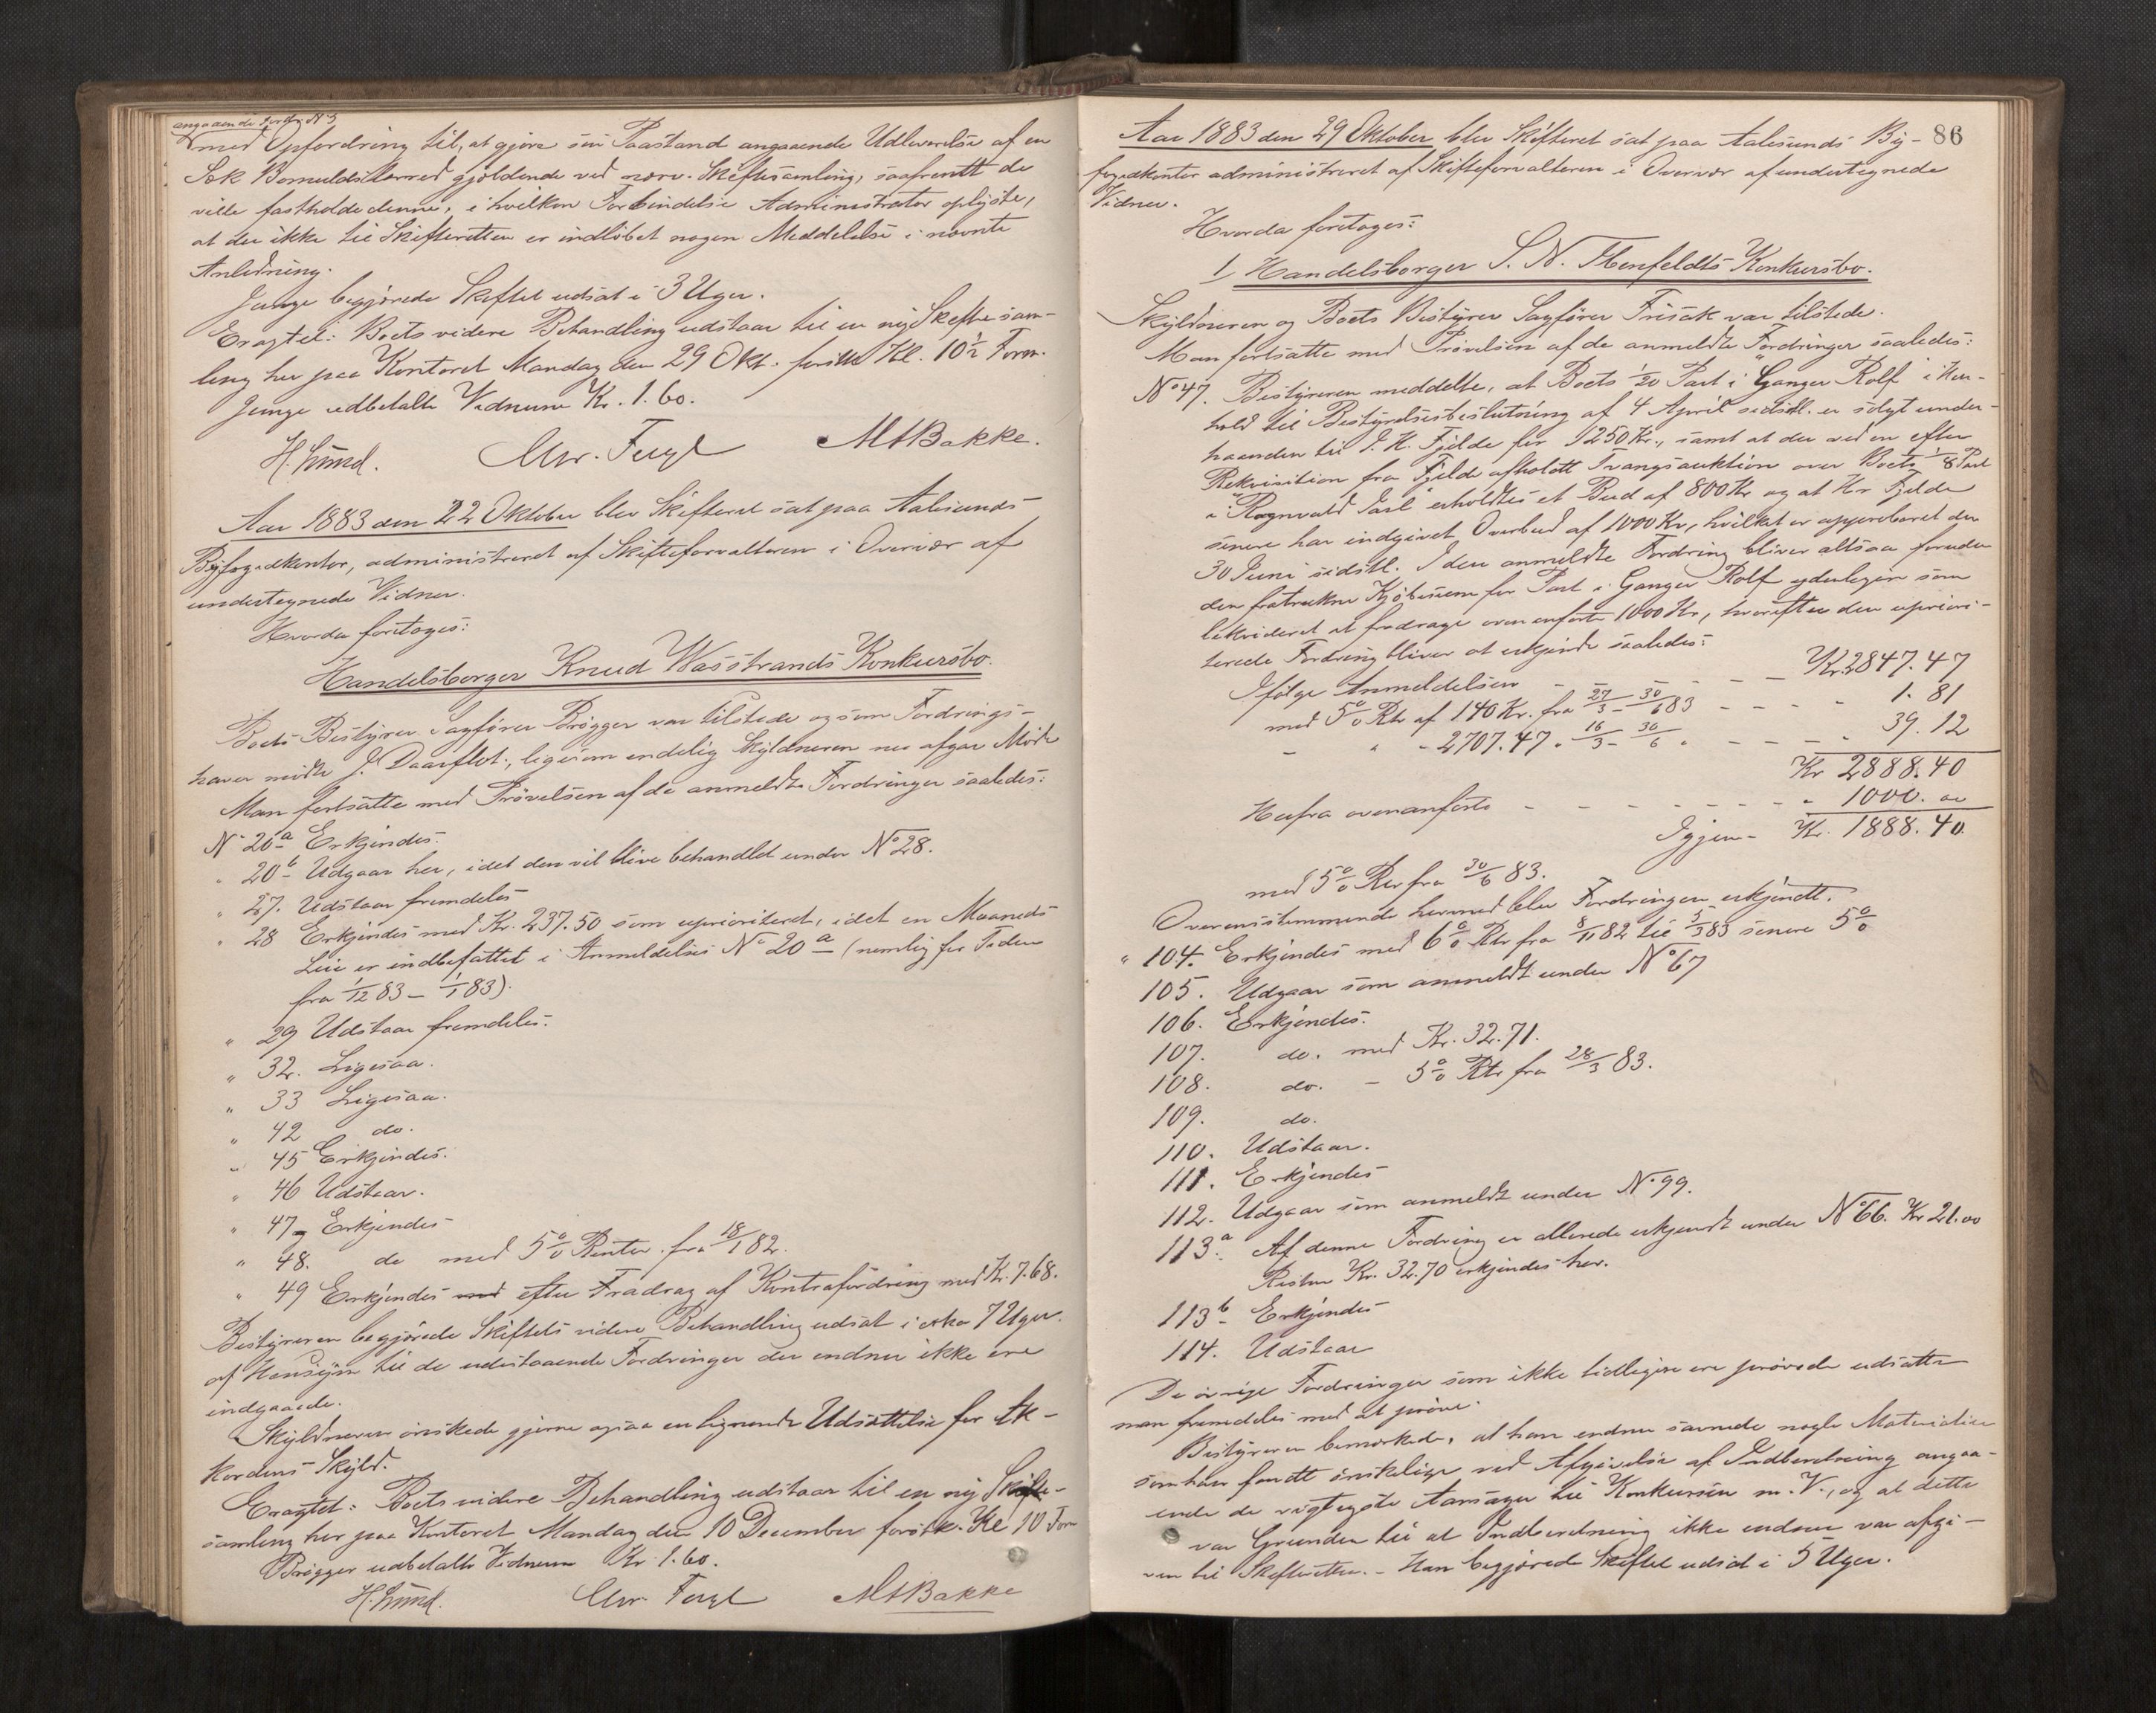 angaaende Fordr. N 5
med Opfordring til, at gjøre sin Paastand angaaende Udleverelse af en
Sæk Bomuldslærred gjældende ved næv. Skiftesamling, saafremt de
ville fastholde denne, i hvilken Forbindelse Administrator oplyste,
at der ikke til Skifteretten er indløbet nogen Meddelelse i nævnte
Anledning.
Junge begjærede Skiftet udsat i 3 Uger.
Eragtet: Boets videre Behandling udstaar til en ny Skiftesam-
ling her paa Kontoret Mandag den 29 Okt. førstk. Kl. 10½ Form.
Junge udbetalte Vidnerne Kr. 1.60.
H. Lund. Chr. MABakke.
Aar 1883 den 22 Oktober blev Skifteret sat paa Aalesunds
Byfogedkontor, administreret af Skifteforvalteren i Overvær af
undertegnede Vidner.
Hvorda foretoges:
Handelsborger Knud Wasstrands Konkursbo.
Boets Bestyrer Sagfører Brøgger var tilstede og som Fordrings-
haver mødte J. Daaflot, ligesom endelig Skyldneren nu afgav Møde
Man fortsatte med Prøvelsen af de anmeldte Fordringer saaledes:
N° 20a Erkjendes.
" 20b Udgaar her, idet den vil blive behandlet under N° 28.
" 27. Udstaar fremdeles
" 28 Erkjendes med Kr. 237.50 som uprioriteret, idet en Maaneds
Leie er indbefattet i Anmeldelses N° 20a (nemlig for Tiden
fra 1/12 83 - 1/1 83).
" 29 Udstaar fremdeles.
" 32. Ligesaa.
" 33 Ligesaa.
" 42 do.
" 45 Erkjendes.
" 46 Udstaar.
" 47 Erkjendes
" 48. do med 5% Renter fra 18/1 82.
" 49 Erkjendes med efter Fradrag af Kontrafordring med Kr. 7.68.
Bestyreren begjærede Skiftets videre Behandling udsat i cirka 7 Uger
af Hensyn til de udestaaende Fordringer der endnu ikke ere
indgaaede.
Skyldneren ønskede gjerne ogsaa en lignende Udsættelse for Ak-
kordens Skyld.
Eragtet: Boets videre Behandling udstaar til en ny Skifte-
samling her paa Kontoret Mandag den 10 December førstk. Kl 10 Form
Brøgger udbetalte Vidnerne Kr. 1.60.
H. Lund. Chr. MABakke
86
Aar 1883 den 29 Oktober blev Skifteret sat paa Aalesunds By-
fogedkontor administreret af Skifteforvalteren i Overvær af undertegnede
Vidner.
Hvorda foretoges:
1/ Handelsborger S. N. Konkursbo.
Skyldneren og Boets Bestyrer Sagfører Frisak var tilstede.
Man fortsatte med Prøvelsen af de anmeldte Fordringer saaledes:
N° 47. Bestyreren meddelte, at Boets 1/20 Part i "Ganger Rolf" i Hen-
hold til Bestyrelsesbeslutning af 4 April sidstl. er solgt under-
haanden til J. K. Fjelde for 1250 Kr., samt at der ved en efter
Rekvisition fra Fjelde afholdt Tvangsauktion over Boets 1/8 Part
i "Ragnvald Jarl" erholdtes et Bud af 800 Kr og at Hr Fjelde
senere har indgivet Overbud af 1000 Kr, hvilket er approberet den
30 Juni sidstl. I den anmeldte Fordring bliver altsaa foruden
den fratrukne Kjøbesum for Part i Ganger Rolf yderligere som
likvideret at fradrage ovenanførte 1000 Kr, hvorefter den upriori-
terede Fordring bliver at erkjende saaledes:
Ifølge Anmeldelsen - - - - - Kr. 2847.47
med 5% Rtr af 140 Kr. fra 27/3 - 30/6 83 - - - " 1.81
- " - 2707.47 " 16/3 - 30/6 " - - - " 39.12
Kr 2888.40
Herfra ovenanførte - - - - - - - " 1000.00
Igjen - Kr. 1888.40.
med 5% Rtr fra 30/6 83.
Overensstemmende hermed blev Fordringen erkjendt.
" 104. Erkjendes med 6% Rtr fra 8/11 82 til 5/3 83 senere 5%
105. Udgaar som anmeldt under N° 67
106. Erkjendes.
107. do. med Kr. 32.71.
108. do. - 5% Rtr fra 28/3 83.
109. do.
110. Udstaar.
111. Erkjendes
112. Udgaar som anmeldt under N° 99.
113a. Af denne Fordring er allerede erkjendt under N° 66. Kr 21.00
Resten Kr. 32.70 erkjendes her.
113b Erkjendes
114. Udstaar
De øvrige Fordringer som ikke tidligere ere prøvede udsatte
man fremdeles med at prøve.
Bestyreren bemærkede, at han endnu savnede nogle Materialier
som han fandt ønskelige ved Afgivelse af Indberetning angaa-
ende de vigtigste Aarsager til Konkursen m. V., og at dette
var Grunden til at Indberetning ikke endnu var afgi-
ven til Skifteretten. - Han begjærede Skiftet udsat i 5 Uger.